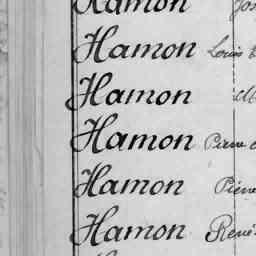 Hamon Jos
Hamon Louis
Hamon
Hamon Pierre
Hamon Pierre
Hamon René